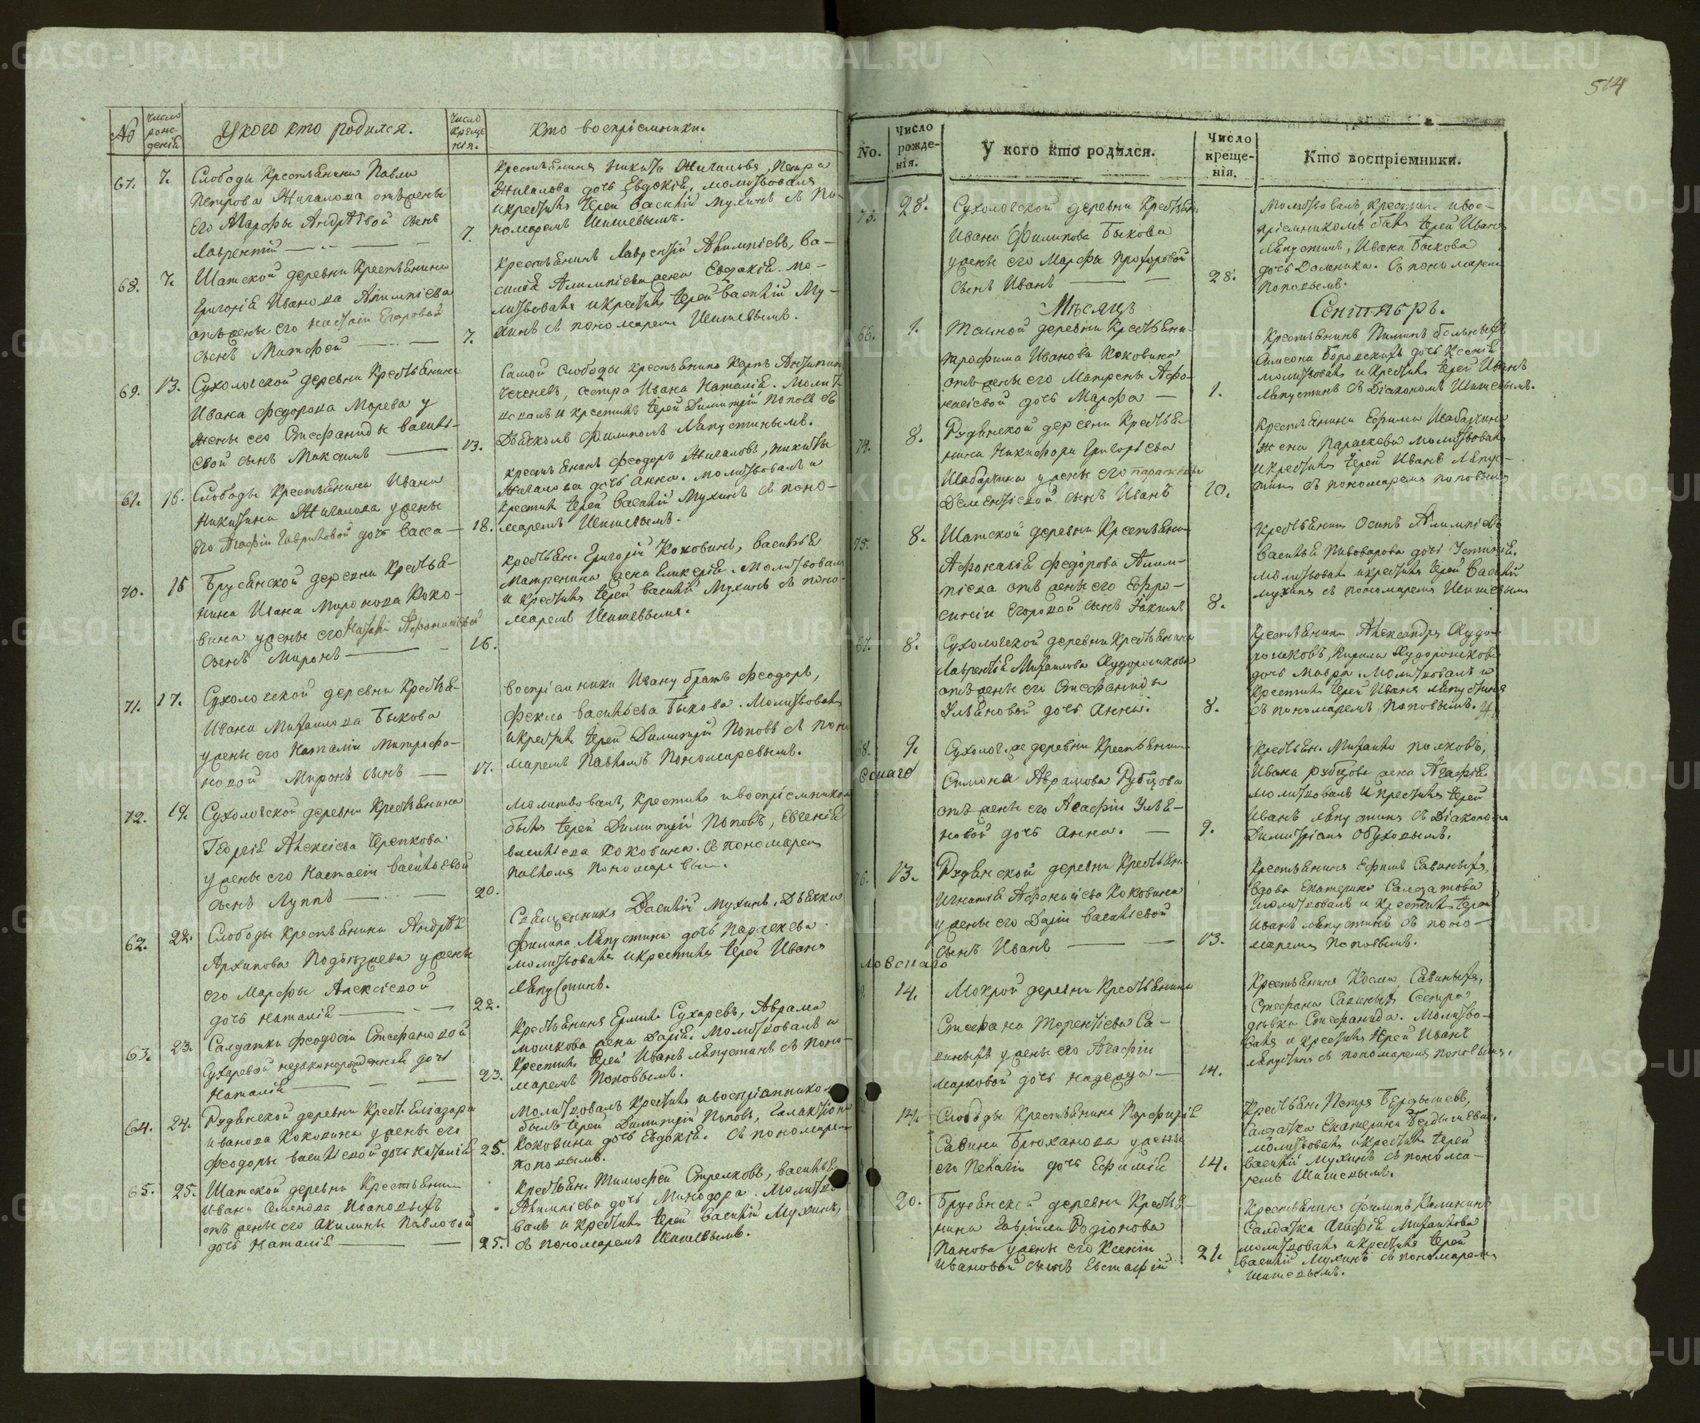 514
№
Число рожденій
У кого кто родился.
Число крещенія.
Кто воспріемники.
67. 7. Слободы Крестьянина Павла
Петрова Жигалова отъ жены
его Марфы Андреевой сынъ
Лаврентій — 7.
Крестьянинъ Никита Жигаловъ, Петра
Жигалова дочь Евдокія, молитвовалъ
и крестилъ Іерей Василій Мухинъ съ По-
номаремъ Шишевымъ.
68. 7. Шатской деревни Крестьянина
Григорія Иванова Алимпіева
отъ жены его Настасіи Егоровой
сынъ Матфей — 7.
Крестьянинъ Лаврентій Алимпіевъ, Ва-
силія Алимпіева жена Евдокія. мо-
литвовалъ и крестилъ Іерей Василій Му-
хинъ съ пономаремъ Шишевымъ.
69. 13. Сухоложской деревни Крестьянина
Ивана Федорова Морева у
жены его Стефаниды Василь-
евой сынъ Максимъ — 13.
Самой слободы крестьянинъ Карпъ
сестра Ивана Наталія. Молит-
вовалъ и крестилъ Іерей Димитрій Поповъ съ
Дьякомъ Филипомъ Ляпустинымъ.
61. 16. Слободы Крестьянина Ивана
Никитина Жигалова у жены
его Агафіи Гавриловой дочь Васса — 18.
Крестьянинъ Феодоръ Жигаловъ, Никиты
Жигалова дочь Анна. молитвовалъ и
крестилъ Іерей Василій Мухинъ съ поно-
маремъ Шишевымъ.
70. 16 Брусянской деревни Крестья-
нина Ивана Миронова Коко-
вина у жены его
сынъ Миронъ — 16.
Крестьян. Григорій Коковинъ, Василья
жена Гликерія. Молитвовалъ
и крестилъ Іерей Василій Мухинъ съ поно-
маремъ Шишевымъ.
71. 17. Сухоложской деревни Крестья-
Ивана Михайлова Быкова
у жены его Наталіи Митрофа-
новой Миронъ сынъ — 17.
Воспріемники Ивану братъ Феодоръ,
Фекла Васильева Быкова. Молитвовалъ
и крестилъ Іерей Димитрій Поповъ съ Поно
маремъ Павломъ Пономаревымъ.
72. 19. Сухоложской деревни Крестьянина
Георгія Алексіева Черепкова
у жены его Настасіи Васильевой
сынъ Луппъ — 20.
Молитвовалъ, крестилъ и воспріемникомъ
былъ Іерей Димитрій Поповъ, Евгенія
Васильева Коковина. Съ пономаремъ
Павломъ Пономаревым.
62. 22. Слободы Крестьянина Андрея
Архипова у жены
его Марфы Алексіевой
дочь Наталія — 22.
Священникъ Василій Мухинъ. Дьячка
Филипа Ляпустина дочь Параскева.
молитвовалъ и крестилъ Іерей Иванъ
Ляпустинъ.
63. 23. Салдатки Феодосіи Стефановой
Сухаревой незаконорожденная дочь
Наталія — 23.
Крестьянинъ Ермилъ Сухаревъ, Аврама
жена Дарія. Молитвовалъ и
крестилъ Іерей Иванъ Ляпустинъ съ Поно-
маремъ Поповымъ.
64. 24. Рудянской деревни Крест. Елизара
Иванова Коковина у жены его
Феодоры Васильевой дочь Наталія 25.
Молитвовалъ крестилъ и воспріемникомъ
былъ Іерей Димитрій Поповъ, Галактіона
Коковина дочь Евдокія. Съ пономаремъ
Поповымъ.
65. 25. Шатской деревни Крестьянина
Ивана Семенова Ивановыхъ
отъ жены его Акилины Павловой
дочь Наталія — 25.
Крестьян. Тимофей Стрелковъ, Василья
Алимпіева дочь Минодора. Молитво
валъ и крестилъ Іерей Василій Мухинъ,
съ Пономаремъ Шишевымъ.
No.
Число рожде-нія.
У кого кто родился.
Число креще-нія.
Кто воспріемники.
73. 28. Сухоложской деревни Крестьян
Ивана Филипова Быкова
у жены его Марфы Прохоровой
сынъ Иванъ — 28.
Молитвовалъ крестилъ и вос-
пріемникомъ былъ Іерей Иванъ
Ляпустинъ, Ивана Быкова
дочь Домника. Съ пономаремъ
Поповымъ.
Мѣсяцъ Сентябрь.
66. 1. деревни Крестьяни-
Трофима Иванова Коковина
отъ жены его Матрены Афо-
насіевой дочь Марфа — 1.
Крестьянинъ
Симеона дочь Ксенія
молитвовалъ и крестилъ Іерей Иванъ
Ляпустинъ съ Діакономъ Шишевымъ.
74. 8. Рудянской деревни Крестья-
нина Никифора Григорьева
Шабалина у жены его Паракевы
Дементіевой сынъ Иванъ 10.
Крестьянина Ефима Шабалина
жена Параскева молитвовалъ
и крестилъ Іерей Иванъ Ляпус-
тинъ съ пономаремъ Поповымъ
75. 8. Шатской деревни Крестьянина
Афонасія Федорова Алим-
піева отъ жены его Евфро-
синіи Егоровой сынъ Іакимъ 8.
Крестьянинъ Осипъ Алимпіевъ
Василья Пивоварова дочь Устинія.
молитвовалъ и крестилъ Іерей Василій
Мухинъ съ пономаремъ Шишевымъ
67. 8. Сухоложской деревни Крестьянина
Лаврентія Михайлова Худорожкова
отъ жены его Стефаниды
Ульяновой дочь Анна. 8.
Крестьянинъ Александръ Худо-
рожковъ, Кирила Худорожкова
дочь Мавра. Молитвовалъ и
крестилъ Іерей Иванъ Ляпустинъ
съ пономаремъ Поповымъ.
68. 9. Сухолож. деревни Крестьянина
Симона Аврамова Рубцова
отъ жены его Агафіи Улья-
новой дочь Анна. — 9.
Крестьян. Михайло Поповъ,
Ивана Рубцова жена Агафія
молитвовалъ и крестилъ Іерей
Иванъ Ляпустинъ съ Діакономъ
Димитріемъ Обуховымъ.
76. 13. Рудянской деревни Крестьян.
Игнатія Афонасіева Коковина
у жены его Даріи Васильевой
сынъ Иванъ — 13.
Крестьянинъ Ефимъ Савиныхъ,
вдова Екатерина Салдатова
молитвовалъ и крестилъ Іерей
Иванъ Ляпустинъ съ поно-
маремъ Поповымъ.
14. Мокрой деревни Крестьянина
Стефана Терентіева Са-
виныхъ у жены его Агафіи
Марковой дочь Надежда — 14.
Крестьянинъ Косма Савиныхъ,
Стефана Савиныхъ сестра
девка Стефанида. Молитво-
валъ и крестилъ Іерей Иванъ
Ляпустинъ съ пономаремъ Поповымъ.
14. Слободы Крестьянина Порфирія
Савина Брюханова у жены
его Пелагіи дочь Ефимія 14.
Крестьян. Петръ Бердышевъ,
Салдатка Екатерина Бердышева.
молитвовалъ и крестилъ Іерей
Василій Мухинъ съ понома-
ремъ Шишевымъ.
20. Брусянской деревни Крестья-
нина Гавріила Родіонова
Панова у жены его Ксеніи
Ивановой сынъ Евстафій 21.
Крестьянинъ Филипъ Калининъ
Салдатка Агафія Михайлова
молитвовалъ и крестилъ Іерей
Василій Мухинъ съ пономаремъ
Шишевымъ.
METRIKI.GASO-URAL.RU